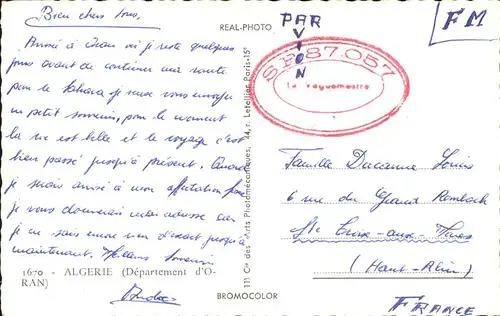 Bien chers tous,
Arrivé à Oran où je reste quelques
jours avant de continuer ma route
pour le Sahara je veux vous envoyer
un petit souvenir, pour le moment
la vie est belle et le voyage c'est
bien passé jusqu'à présent. Quand
je serais arrivé à mon affectation
je vous donnerai mon adresse car
je ne sais encore rien d'exact jusqu'à
maintenant. Meilleurs Souvenirs
1670 - ALGERIE (Département d'O-
RAN)
REAL-PHOTO
111 Cie des Arts Photomécaniques, 44, r. Letellier Paris-15e
BROMOCOLOR
PAR
AVION
FM
SP 87057
Le Vaguemestre
Famille Ducanne Louis
6 rue du Grand Rombach
Ste Croix-aux-Mines
(Haut-Rhin)
FRANCE